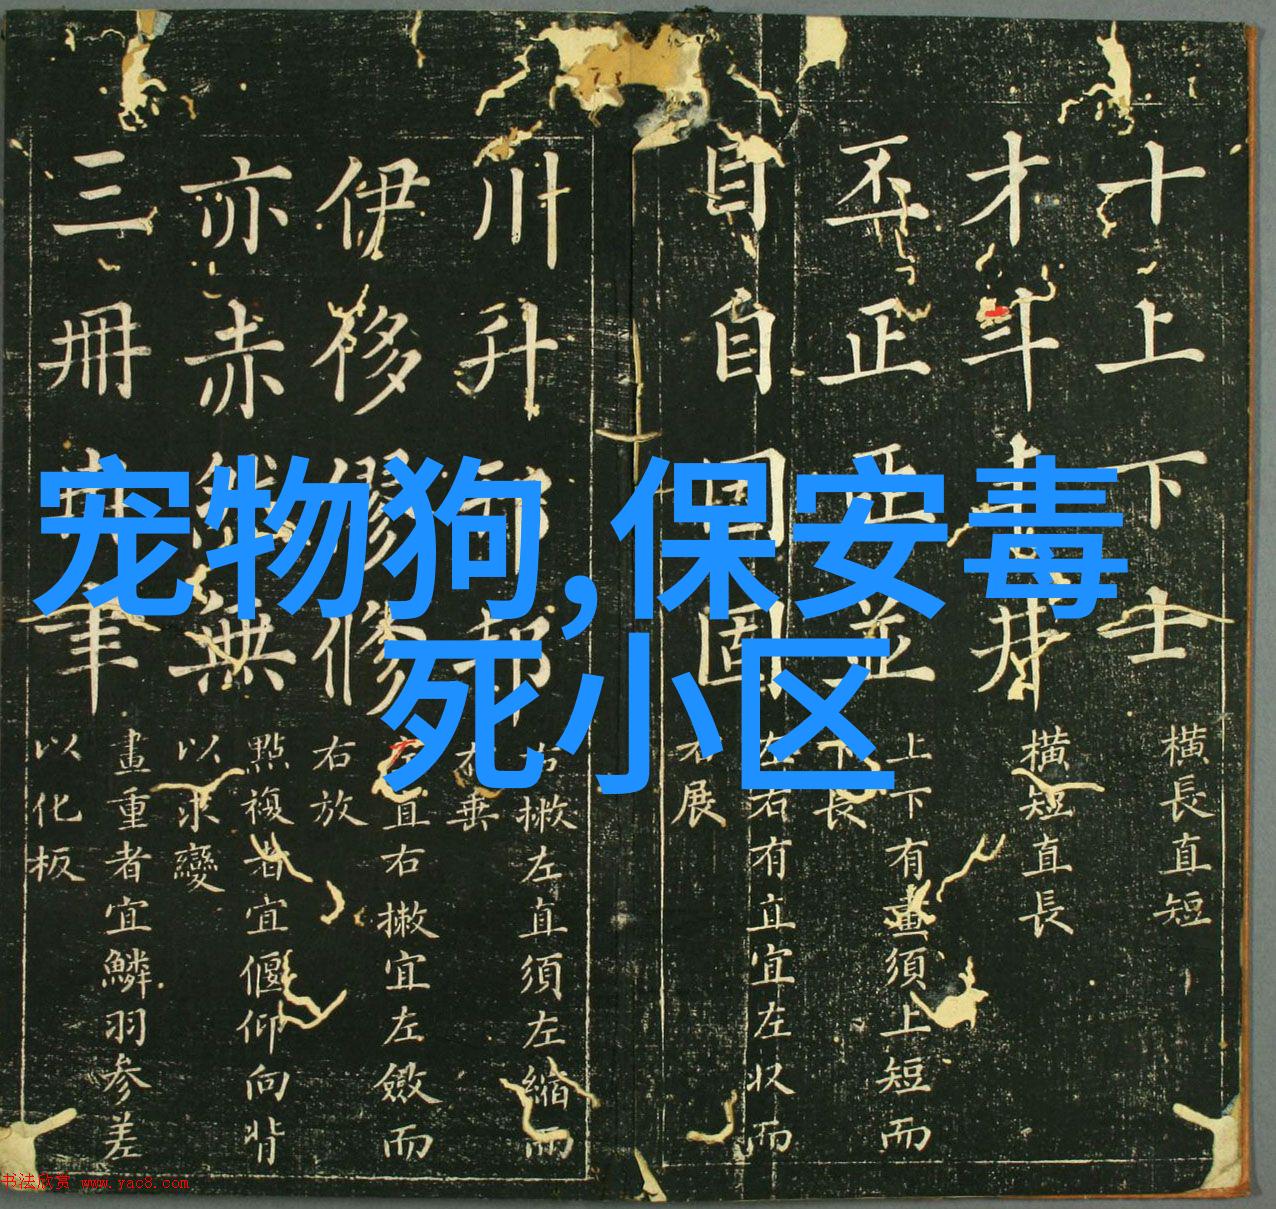 十上下士
横長直短
才斗
横短直長
丕正亞並
上下有畫須上短而
下長
自自固固
左右有直宜左收而
右展
川升
右撇左直須左縮而
右垂
伊侈修
左直右撇宜左斂而
右放
亦赤然無
點複者宜偃仰向背
以求變
三冊冊
畫重者宜鱗羽参差
以化板
宠物狗,保安毒
死小区
书法欣赏 www.yac8.com